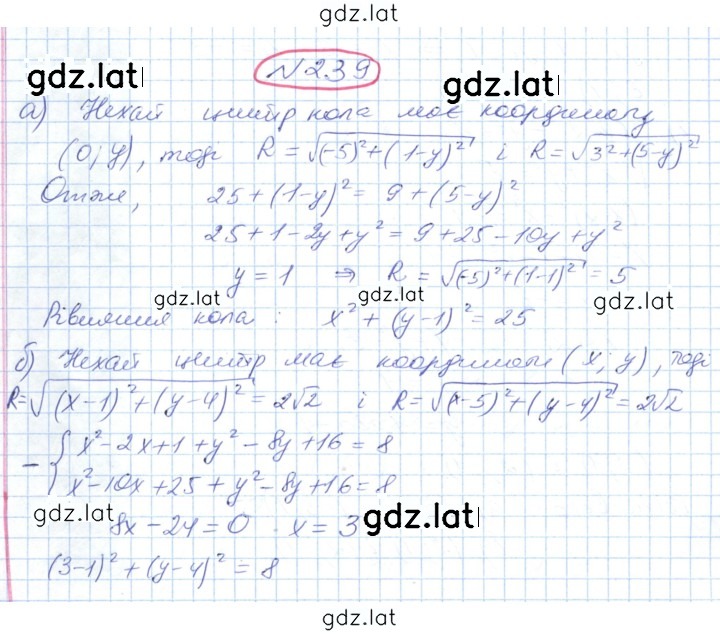 gdz.lat
№239
gdz.lat gdz.lat
а) Нехай центр кола має координату
(0; y), тоді R = √(-5)²+(1-y)² і R = √3²+(5-y)²
Отже, 25+(1-y)² = 9+(5-y)²
25+1-2y+y² = 9+25-10y+y²
y = 1 ⇒ R = √(-5)²+(1-1)² = 5
gdz.lat gdz.lat gdz.lat
Рівняння кола: x²+(y-1)² = 25
б) Нехай центр має координати (x; y), тоді
R=√(x-1)²+(y-4)² = 2√2 і R=√(x-5)²+(y-4)² = 2√2
- { x²-2x+1+y²-8y+16 = 8
x²-10x+25+y²-8y+16 = 8
gdz.lat gdz.lat
8x-24 = 0 x = 3
(3-1)²+(y-4)² = 8
gdz.lat